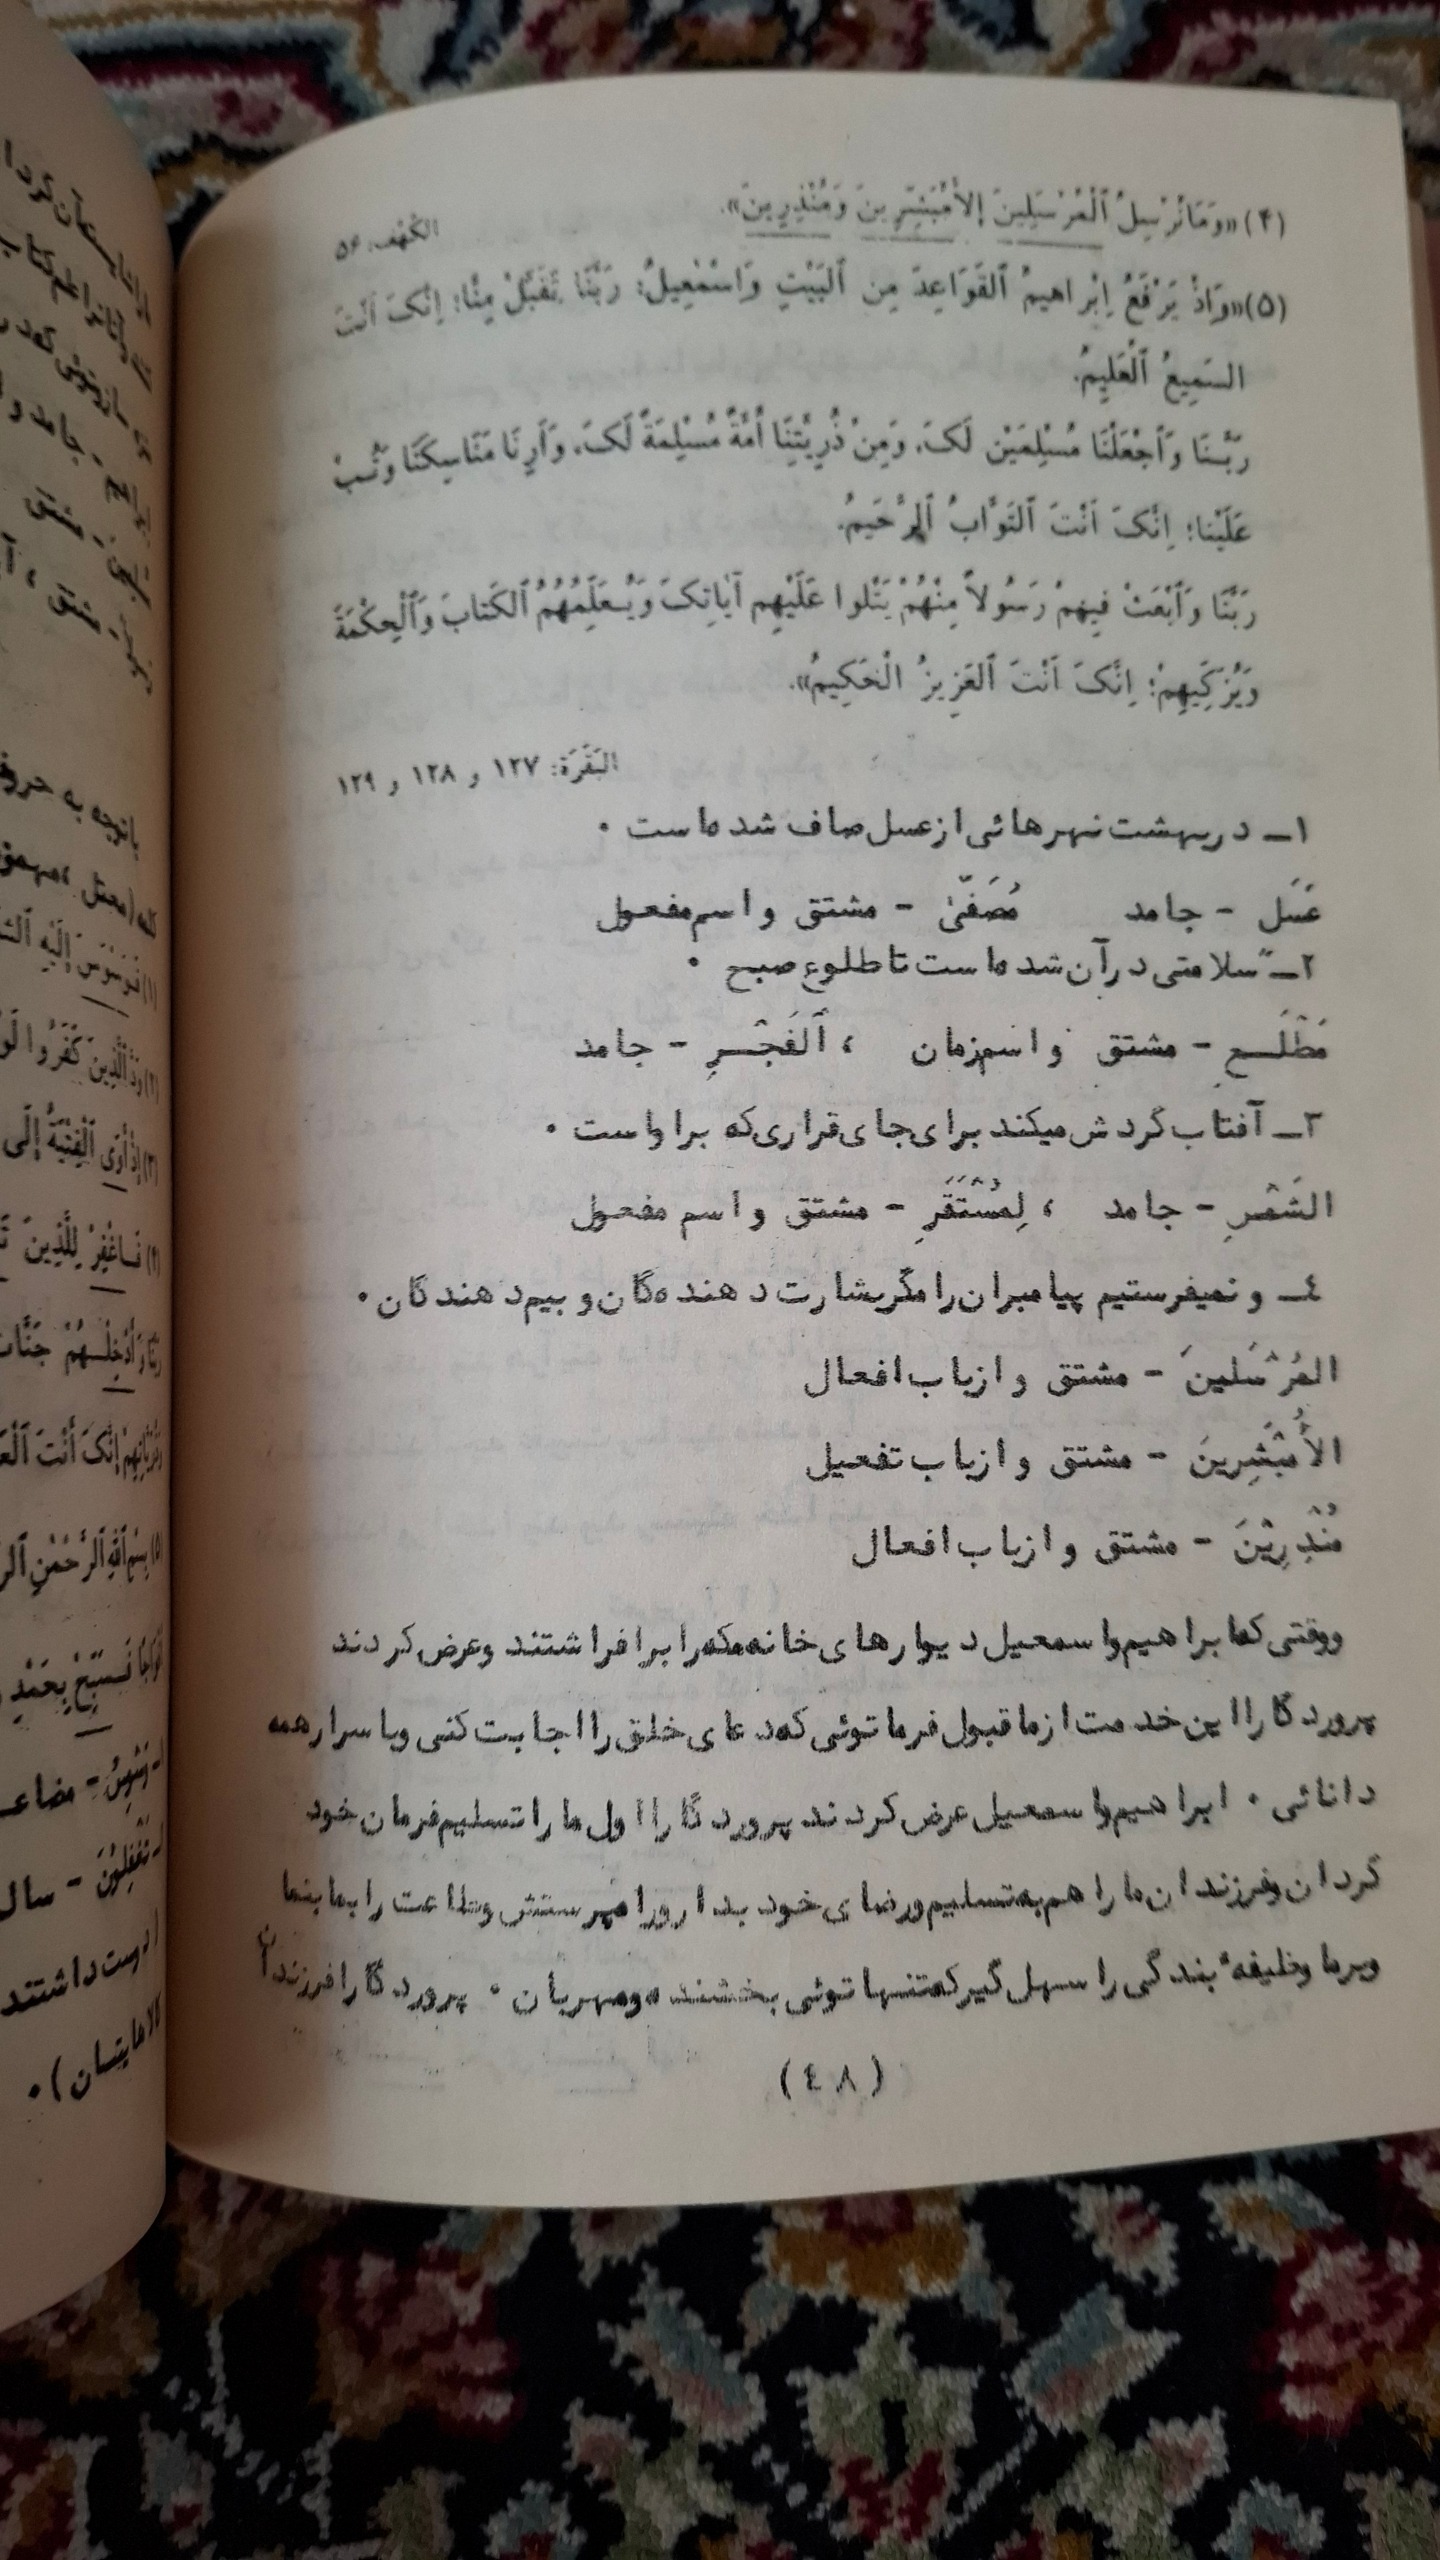 (۴) «وَمَا نُرْسِلُ ٱلْمُرْسَلِینَ إلاَّمُبَشِّرِینَ وَمُنْذِرِینَ».
الکَهْف: ۵۶
(۵) «وَاِذْ یَرْفَعُ اِبْراهیمُ ٱلْقَوَاعِدَ مِنَ ٱلْبَیْتِ وَاِسْمٰعِیلُ: رَبَّنَا تَقَبَّلْ مِنَّا؛ اِنَّکَ اَنْتَ
السَّمِیعُ ٱلْعَلِیمُ.
رَبَّنَا وَٱجْعَلْنَا مُسْلِمَیْنِ لَکَ، وَمِنْ ذُرِّیَّتِنَا اُمَّةً مُسْلِمَةً لَکَ، وَاَرِنَا مَنَاسِکَنَا وَتُبْ
عَلَیْنا؛ اِنَّکَ اَنْتَ ٱلتَّوَّابُ ٱلرَّحَیمُ.
رَبَّنَا وَٱبْعَثْ فِیهِمْ رَسُولاً مِنْهُمْ یَتْلوا عَلَیْهِم آیاتِکَ وَیُعَلِّمُهُمُ ٱلکَتابَ وَٱلْحِکْمَةَ
وَیُزَکِّیهِمْ؛ اِنَّکَ اَنْتَ ٱلعَزِیزُ الْحَکِیمُ».
البَقَرَة: ۱۲۷ و ۱۲۸ و ۱۲۹
۱ــ در بهشت نهرهائی از عسل صاف شده است .
عَسَل - جامد مُصَفّیٰ - مشتق و اسم مفعول
۲ــ سلامتی در آن شده است تا طلوع صبح .
مَطْلَـــعِ - مشتق و اسم زمان ، ٱلفَجْـــرِ - جامد
۳ــ آفتاب گردش میکند برای جای قراری که برا و است .
الشَمْسِ - جامد ، لِمُسْتَقَرِ - مشتق و اسم مفعول
٤ــ و نمیفرستیم پیامبران را مگر بشارت دهنده گان و بیم دهندگان .
المُرْسَلینَ - مشتق و از باب افعال
الأَمُبَشِرینَ - مشتق و از باب تفعیل
مُنْذِرِیْنَ - مشتق و از باب افعال
ووقتی که ابراهیم و اسمعیل دیوارهای خانه مکه را برافراشتند و عرض کردند
پروردگارا این خدمت از ما قبول فرما توئی که دعای خلق را اجابت کنی و با سرار همه
دانائی . ابراهیم و اسمعیل عرض کردند پروردگارا اول ما را تسلیم فرمان خود
گردان و فرزندان ما را هم به تسلیم و رضای خود بدار و راه پرستش و طاعت را بما بنما
و بر ما وظیفهٔ بندگی را سهل گیر که تنها توئی بخشنده و مهربان . پروردگارا فرزندان
(٤٨)